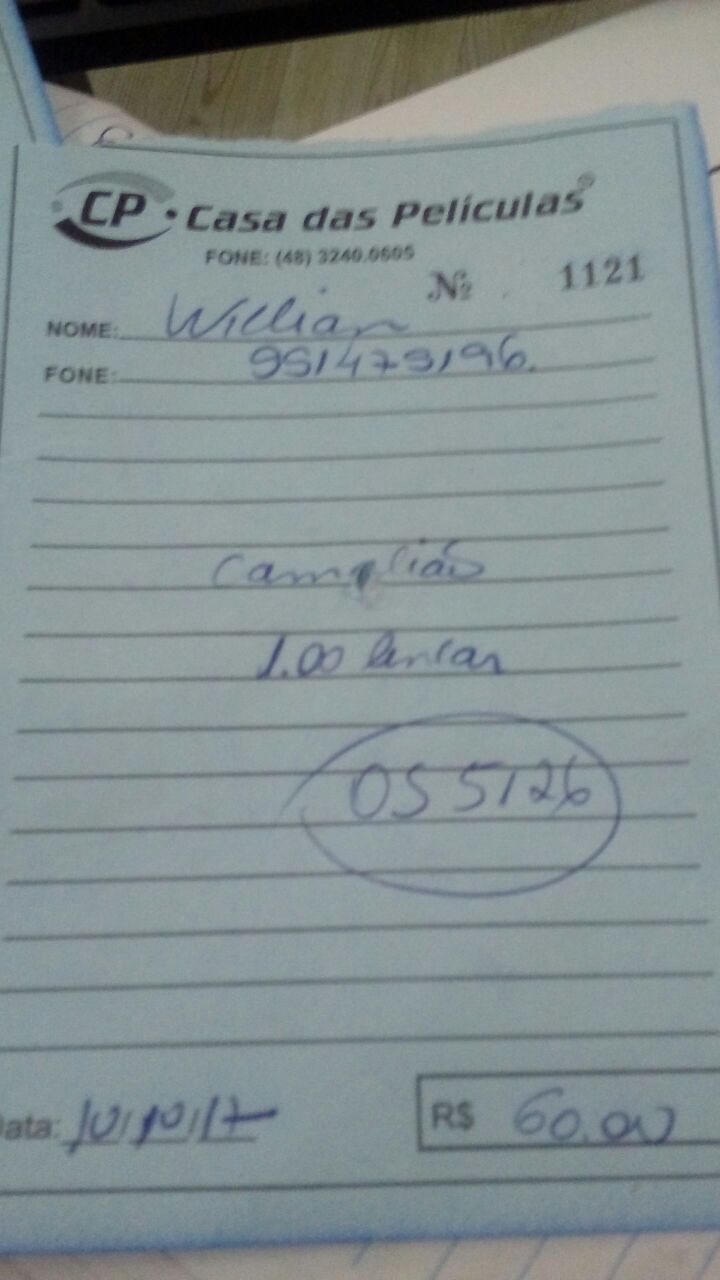 CP • Casa das Películas®
FONE: (48) 3240.0605
Nº 1121
NOME: Willian
FONE: 991479196.
1.00
OS 5126
Data: 10/10/17
R$ 60.00